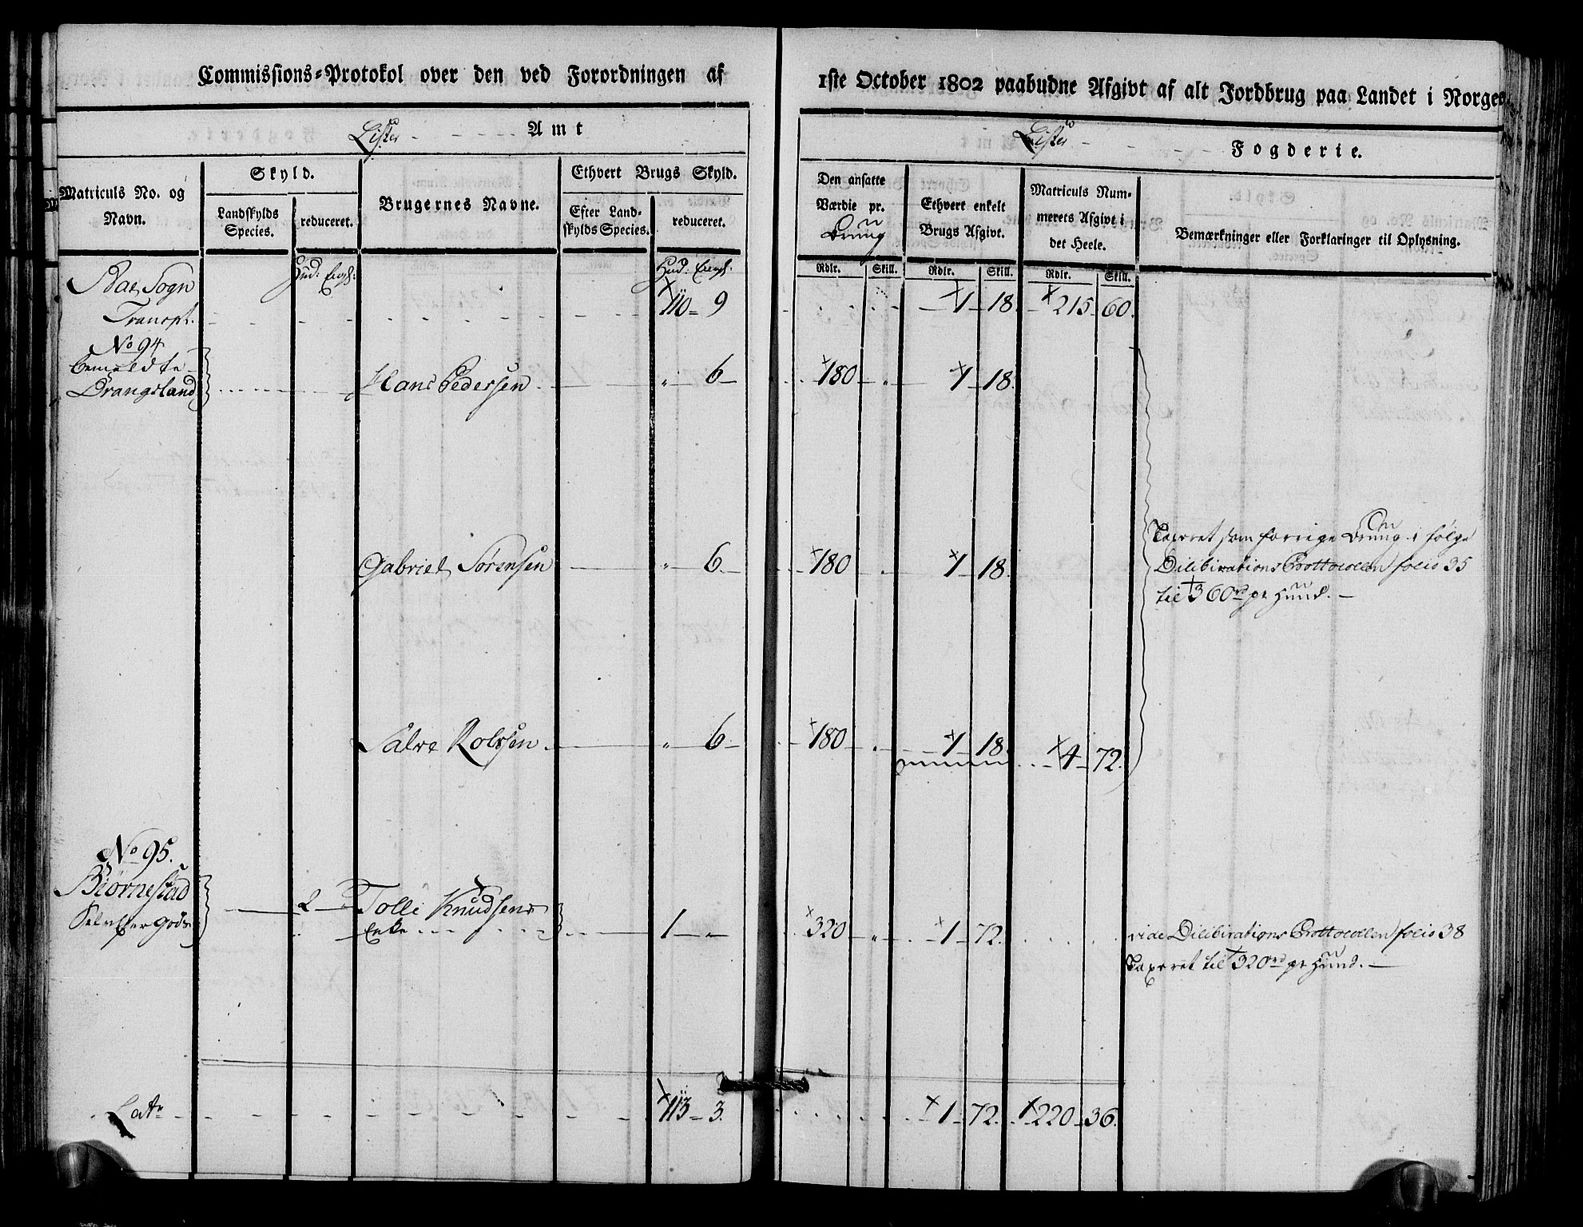 Commissions-Protokol over den ved Forordningen af 1ste October 1802 paabudne Afgivt af alt Jordbrug paa Landet i Norge
Lister Amt
Lister Fogderie.
Matriculs No. og Navn.
Skyld.
Landskylds Species.
reduceret.
Brugernes Navne.
Ethvert Brugs Skyld.
Efter Landskylds Species.
reduceret.
Den ansatte Værdie pr. Bruug
Ethvert enkelt Brugs Afgivt.
Matriculs Nummerets Afgivt i det Heele.
Bemærkninger eller Forklaringer til Oplysning.
Rdlr. Skill. Rdlr. Skill. Rdlr. Skill.
Hud: Engl:
Hud: Engl:
Bae Sogn
Transpt. 110 9 1 18 215 60
No 94
Bemeldte
Drangsland Hans Pedersen " 6 180 " 1 18
Gabriel Sørensen " 6 180 " 1 18
Taxeret som forrige Bruug i følge
Dilibirations Prottocollen folio 35
til 360 rd pr Huud.
Salve Rolfsen " 6 180 " 1 18 4 72
No 95.
Biørnestad
2 " Tolle Knudsens
Enke 1 " 320 " 1 72
vide Dilibirations Prottocollen folio 38
Taxeret til 320 rd pr Huud.
Latr 113 3 1 72 220 36